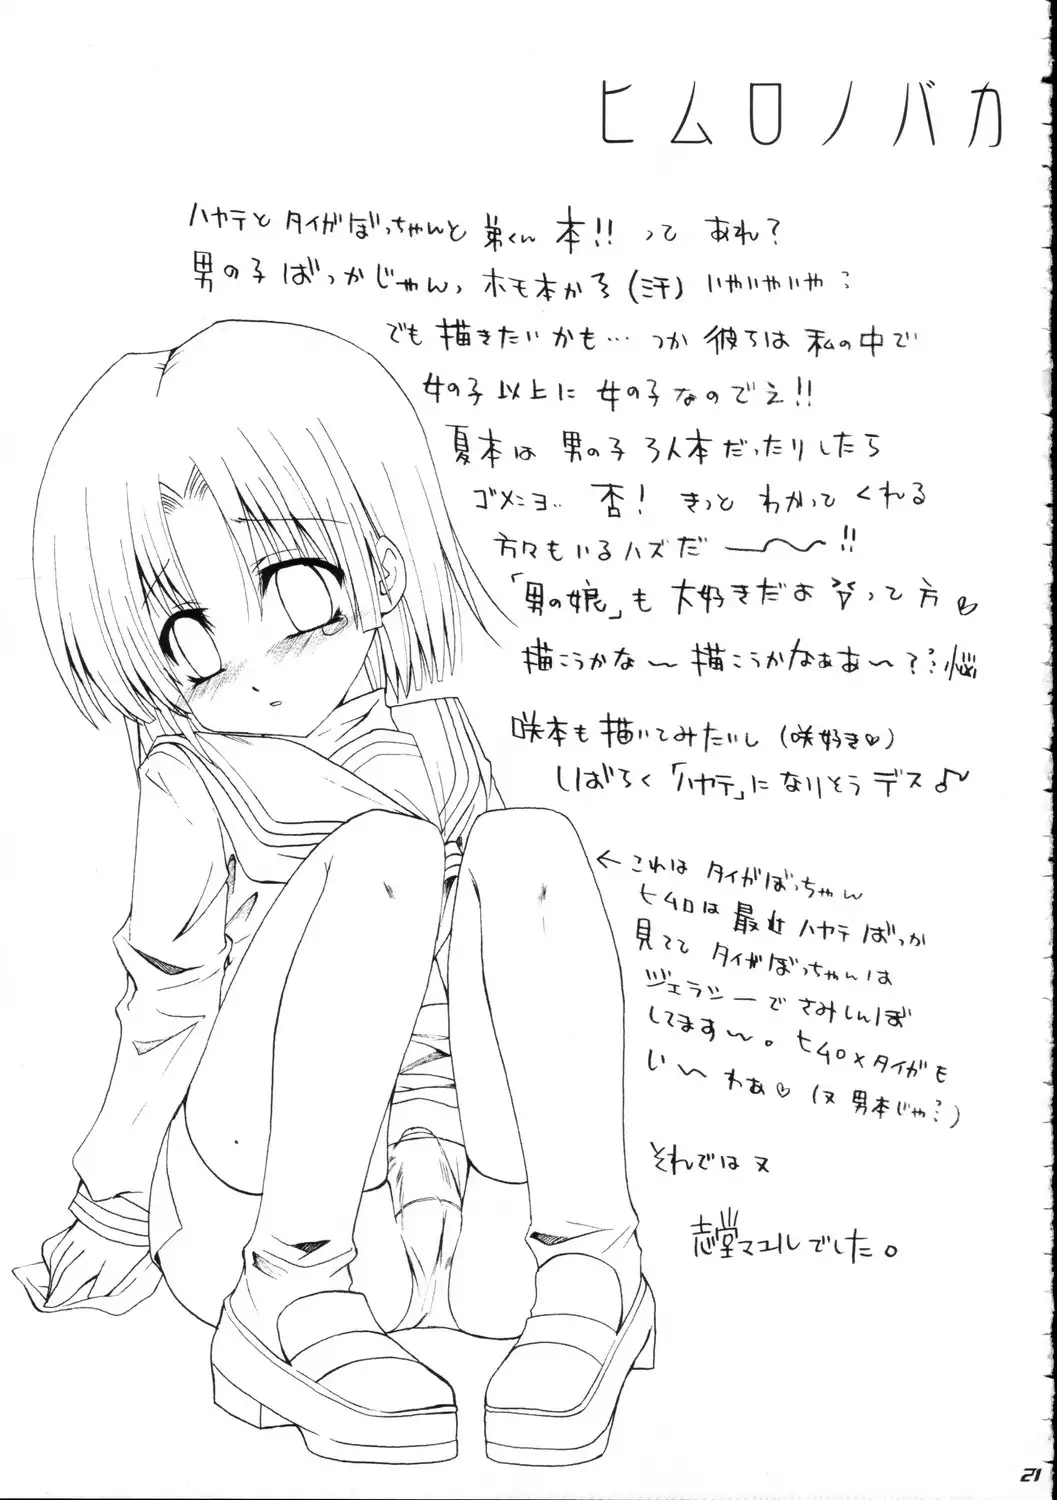 ヒムロノバカ
ハヤテとタイガぼっちゃんと弟くん本!!ってあれ?
男の子ばっかじゃんっホモ本かよ(汗)いやいやいや…
でも描きたいかも…つか彼らは私の中で
女の子以上に女の子なのでえ!!
夏本は男の子3人本だったりしたら
ゴメニョ…否!きっとわかってくれる
方々もいるハズだ〜〜!!
「男の娘」も大好きだよって方♡
描こうかな〜描こうかなぁあ〜?…悩
咲本も描いてみたいし(咲好き♡)
しばらく「ハヤテ」になりそうデス♪
←これはタイガぼっちゃん
ヒムロは最近ハヤテばっか
見ててタイガぼっちゃんは
ジェラシーでさみしんぼ
してます〜。ヒムロ×タイガも
い〜わぁ♡(ヌ男本じゃ…?)
それではヌ
志堂マユルでした。
21